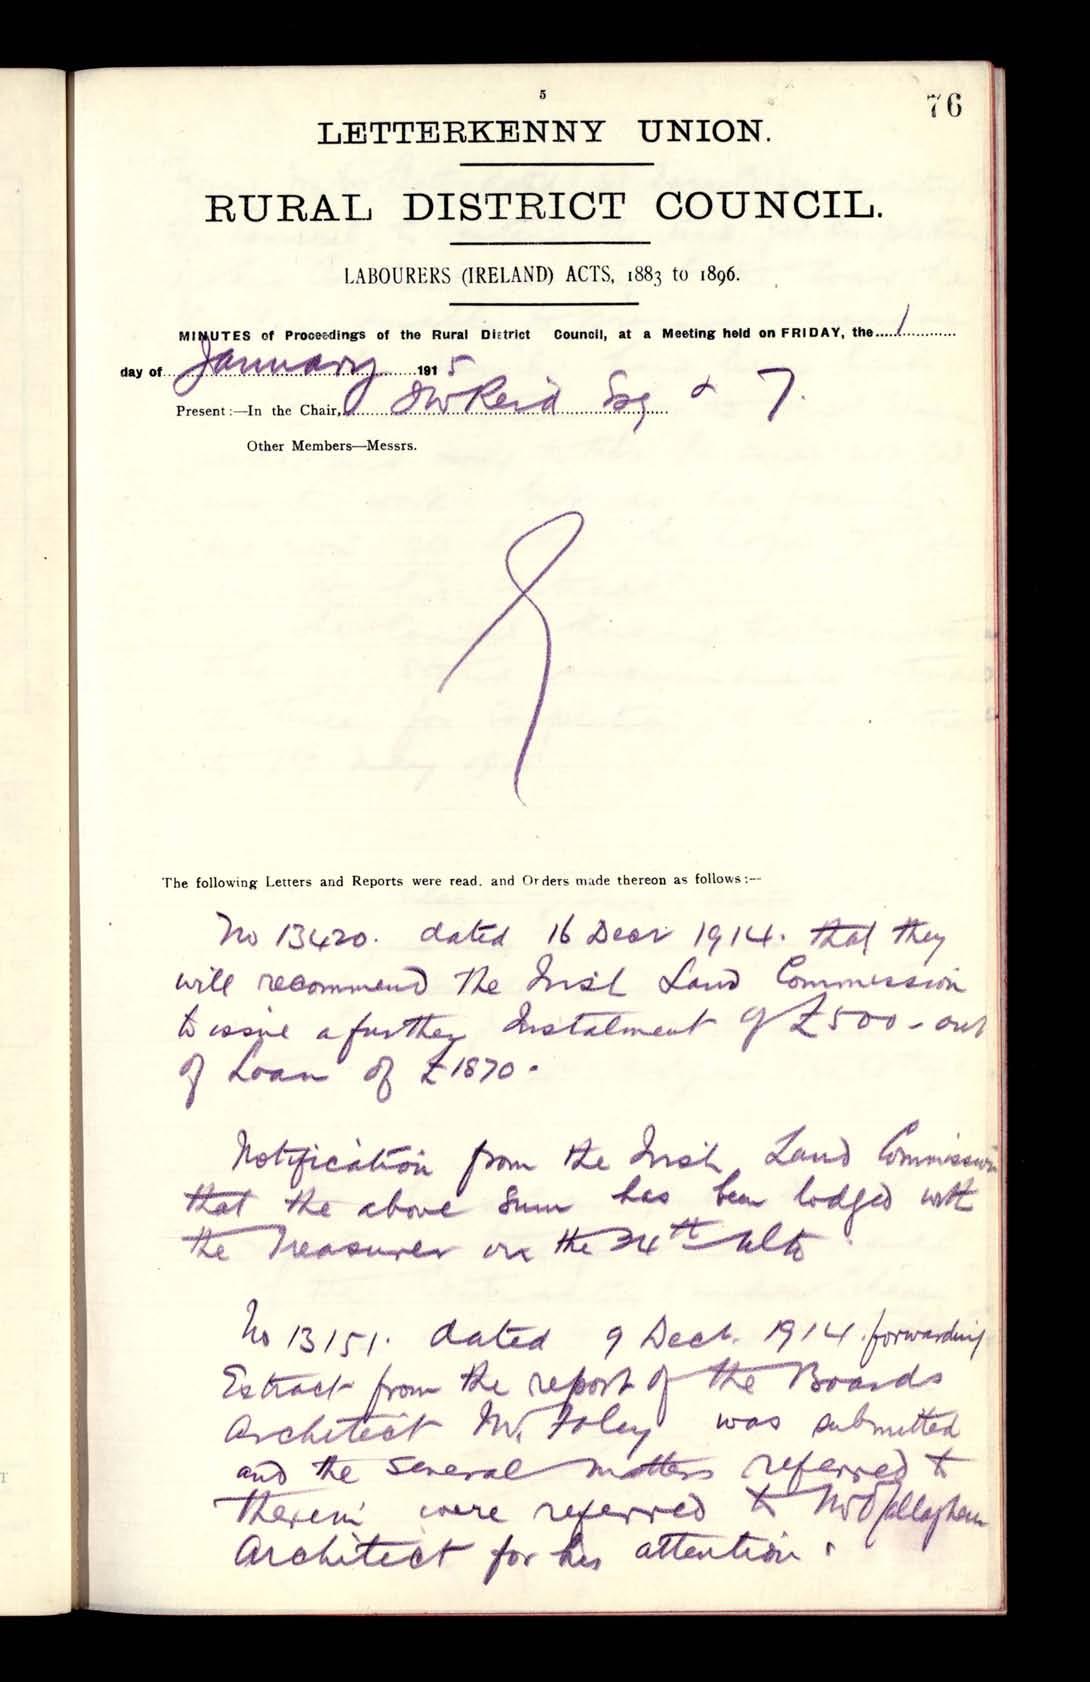 5
76
LETTERKENNY UNION.
RURAL DISTRICT COUNCIL.
LABOURERS (IRELAND) ACTS, 1883 to 1896.
MINUTES of Proceedings of the Rural District Council, at a Meeting held on FRIDAY, the 1
day of January 1915
Present:—In the Chair, Reid Esq & 7.
Other Members—Messrs.
The following Letters and Reports were read, and Orders made thereon as follows:—
No 13420. dated 16 Decr 1914. that they
will recommend the Irish Land Commission
to issue a further Instalment of £500 - out
of Loan of £1870.
Notification from the Irish Land Commission
that the above Sum has been lodged with
the Treasurer on the 24th Ulto.
No 13151. dated 9 Decr. 1914. forwarding
Extract from the report of the Boards
Architect Mr. Foley was submitted
and the several matters referred to
therein were referred to Mr O'Callaghan
Architect for his attention.